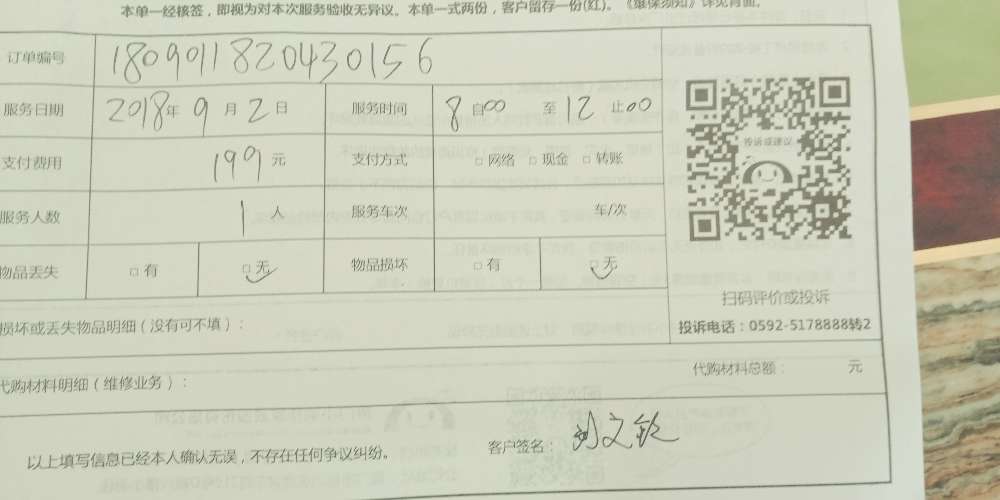 本单一经核签，即视为对本次服务验收无异议。本单一式两份，客户留存一份(红)。《维保须知》详见背面。
订单编号 1809011820430156
服务日期 2018年 9 月 2 日 服务时间 8 自00 至 12 止00
支付费用 199 元 支付方式 □ 网络 □ 现金 □ 转账
服务人数 1 人 服务车次 车/次
物品丢失 □ 有 □ 无 物品损坏 □ 有 □ 无
投诉或建议
扫码评价或投诉
投诉电话：0592-5178888转2
损坏或丢失物品明细（没有可不填）：
代购材料明细（维修业务）： 代购材料总额： 元
以上填写信息已经本人确认无误，不存在任何争议纠纷。 客户签名： 刘文钦